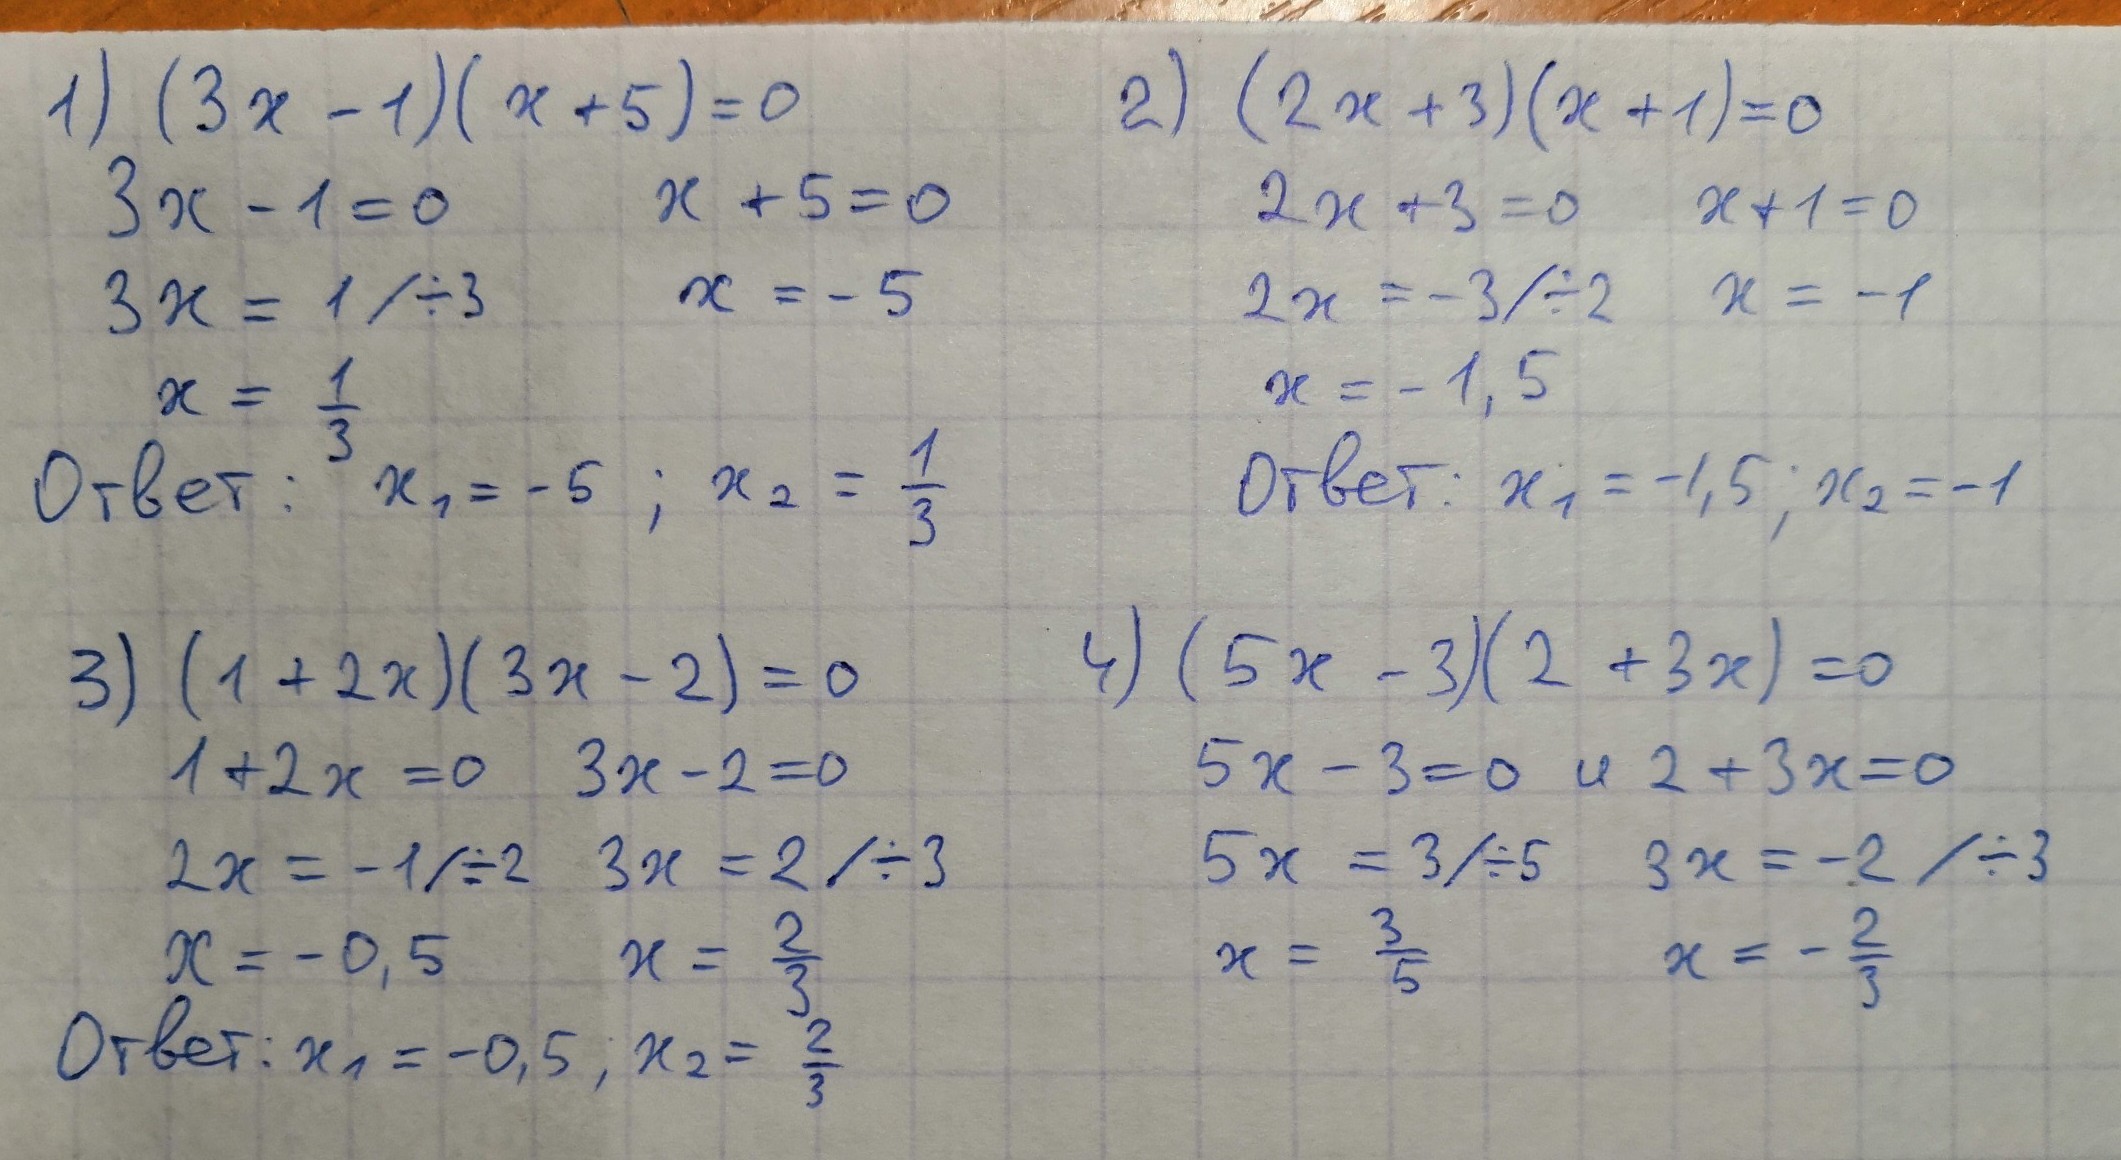 1) (3x - 1)(x + 5) = 0
3x - 1 = 0 x + 5 = 0
3x = 1 / ÷3 x = - 5
x = 1/3
Ответ: x₁ = - 5 ; x₂ = 1/3
2) (2x + 3)(x + 1) = 0
2x + 3 = 0 x + 1 = 0
2x = - 3 / ÷2 x = - 1
x = - 1,5
Ответ: x₁ = -1,5 ; x₂ = - 1
3) (1 + 2x)(3x - 2) = 0
1 + 2x = 0 3x - 2 = 0
2x = - 1 / ÷2 3x = 2 / ÷3
x = - 0,5 x = 2/3
Ответ: x₁ = -0,5 ; x₂ = 2/3
4) (5x - 3)(2 + 3x) = 0
5x - 3 = 0 и 2 + 3x = 0
5x = 3 / ÷5 3x = - 2 / ÷3
x = 3/5 x = - 2/3